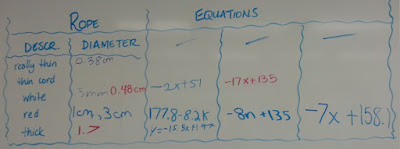 ROPE EQUATIONS
DESCR. DIAMETER
really thin 0.38cm
thin cord 5mm 0.48cm -2x+57 -17x+135
white
red 1cm, .3cm 177.8-8.2x -8n+135 -7x+158.1
thick 1.7 y=-15.5x+147